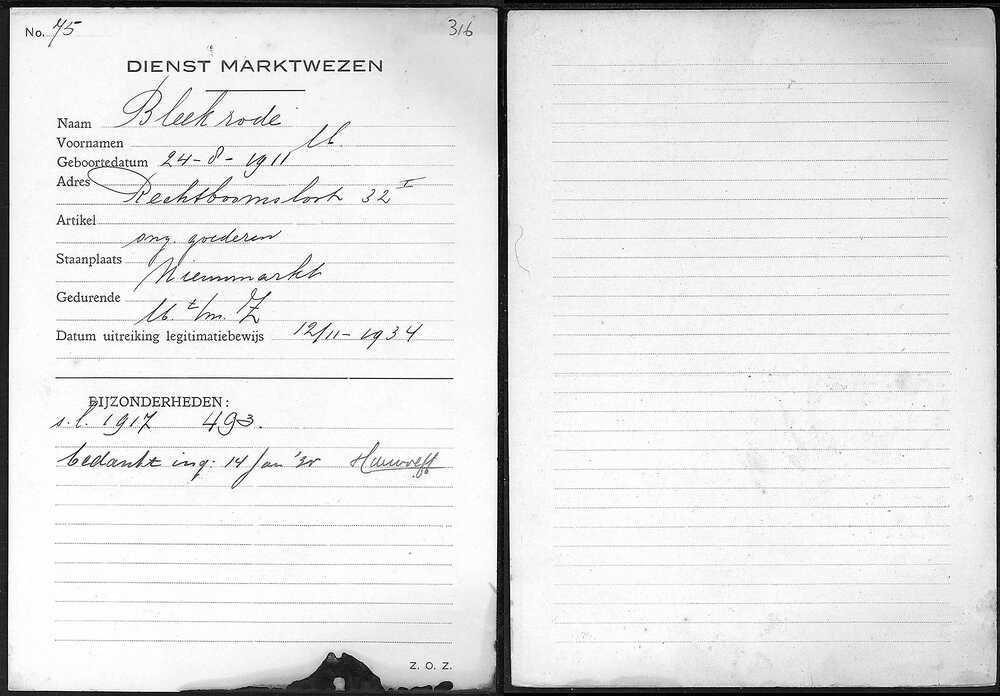 No. 75 316
DIENST MARKTWEZEN
Naam Bleekrode
Voornamen M.
Geboortedatum 24-8-1911
Adres Rechtboomsloot 32 I
Artikel
ong. goederen
Staanplaats
Nieuwmarkt
Gedurende
M. t/m. Z
Datum uitreiking legitimatiebewijs 12/11-1934
BIJZONDERHEDEN:
s.l. 1917 493.
bedankt ing: 14 Jan
Z. O. Z.